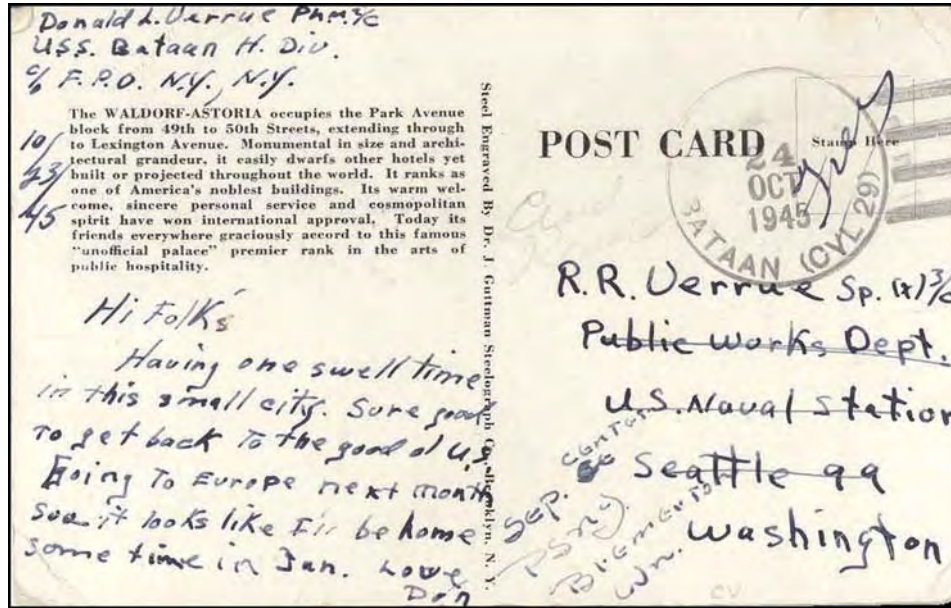 Donald L. Verrue PhM 3/c
U.S.S. Bataan H. Div.
c/o F.P.O. N.Y., N.Y.
10/
23/
45
The WALDORF-ASTORIA occupies the Park Avenue
block from 49th to 50th Streets, extending through
to Lexington Avenue. Monumental in size and archi-
tectural grandeur, it easily dwarfs other hotels yet
built or projected throughout the world. It ranks as
one of America's noblest buildings. Its warm wel-
come, sincere personal service and cosmopolitan
spirit have won international approval. Today its
friends everywhere graciously accord to this famous
"unofficial palace" premier rank in the arts of
public hospitality.
Hi Folk's
Having one swell time
in this small city. Sure good
to get back to the good ol U.S.
Going to Europe next month
soo it looks like I'll be home
some time in Jan. Love
Don
Steel Engraved By Dr. J. Guttman Steelograph Co., Brooklyn, N. Y.
POST CARD
Stamp Here
Free
24
OCT
1945
BATAAN (CVL 29)
R.R. Verrue Sp. (x) 3/c
Public Works Dept.
U.S. Naval Station
Seattle 99
Washington
Sep. Center
PSNY.
Bremerton
Wn.
CV